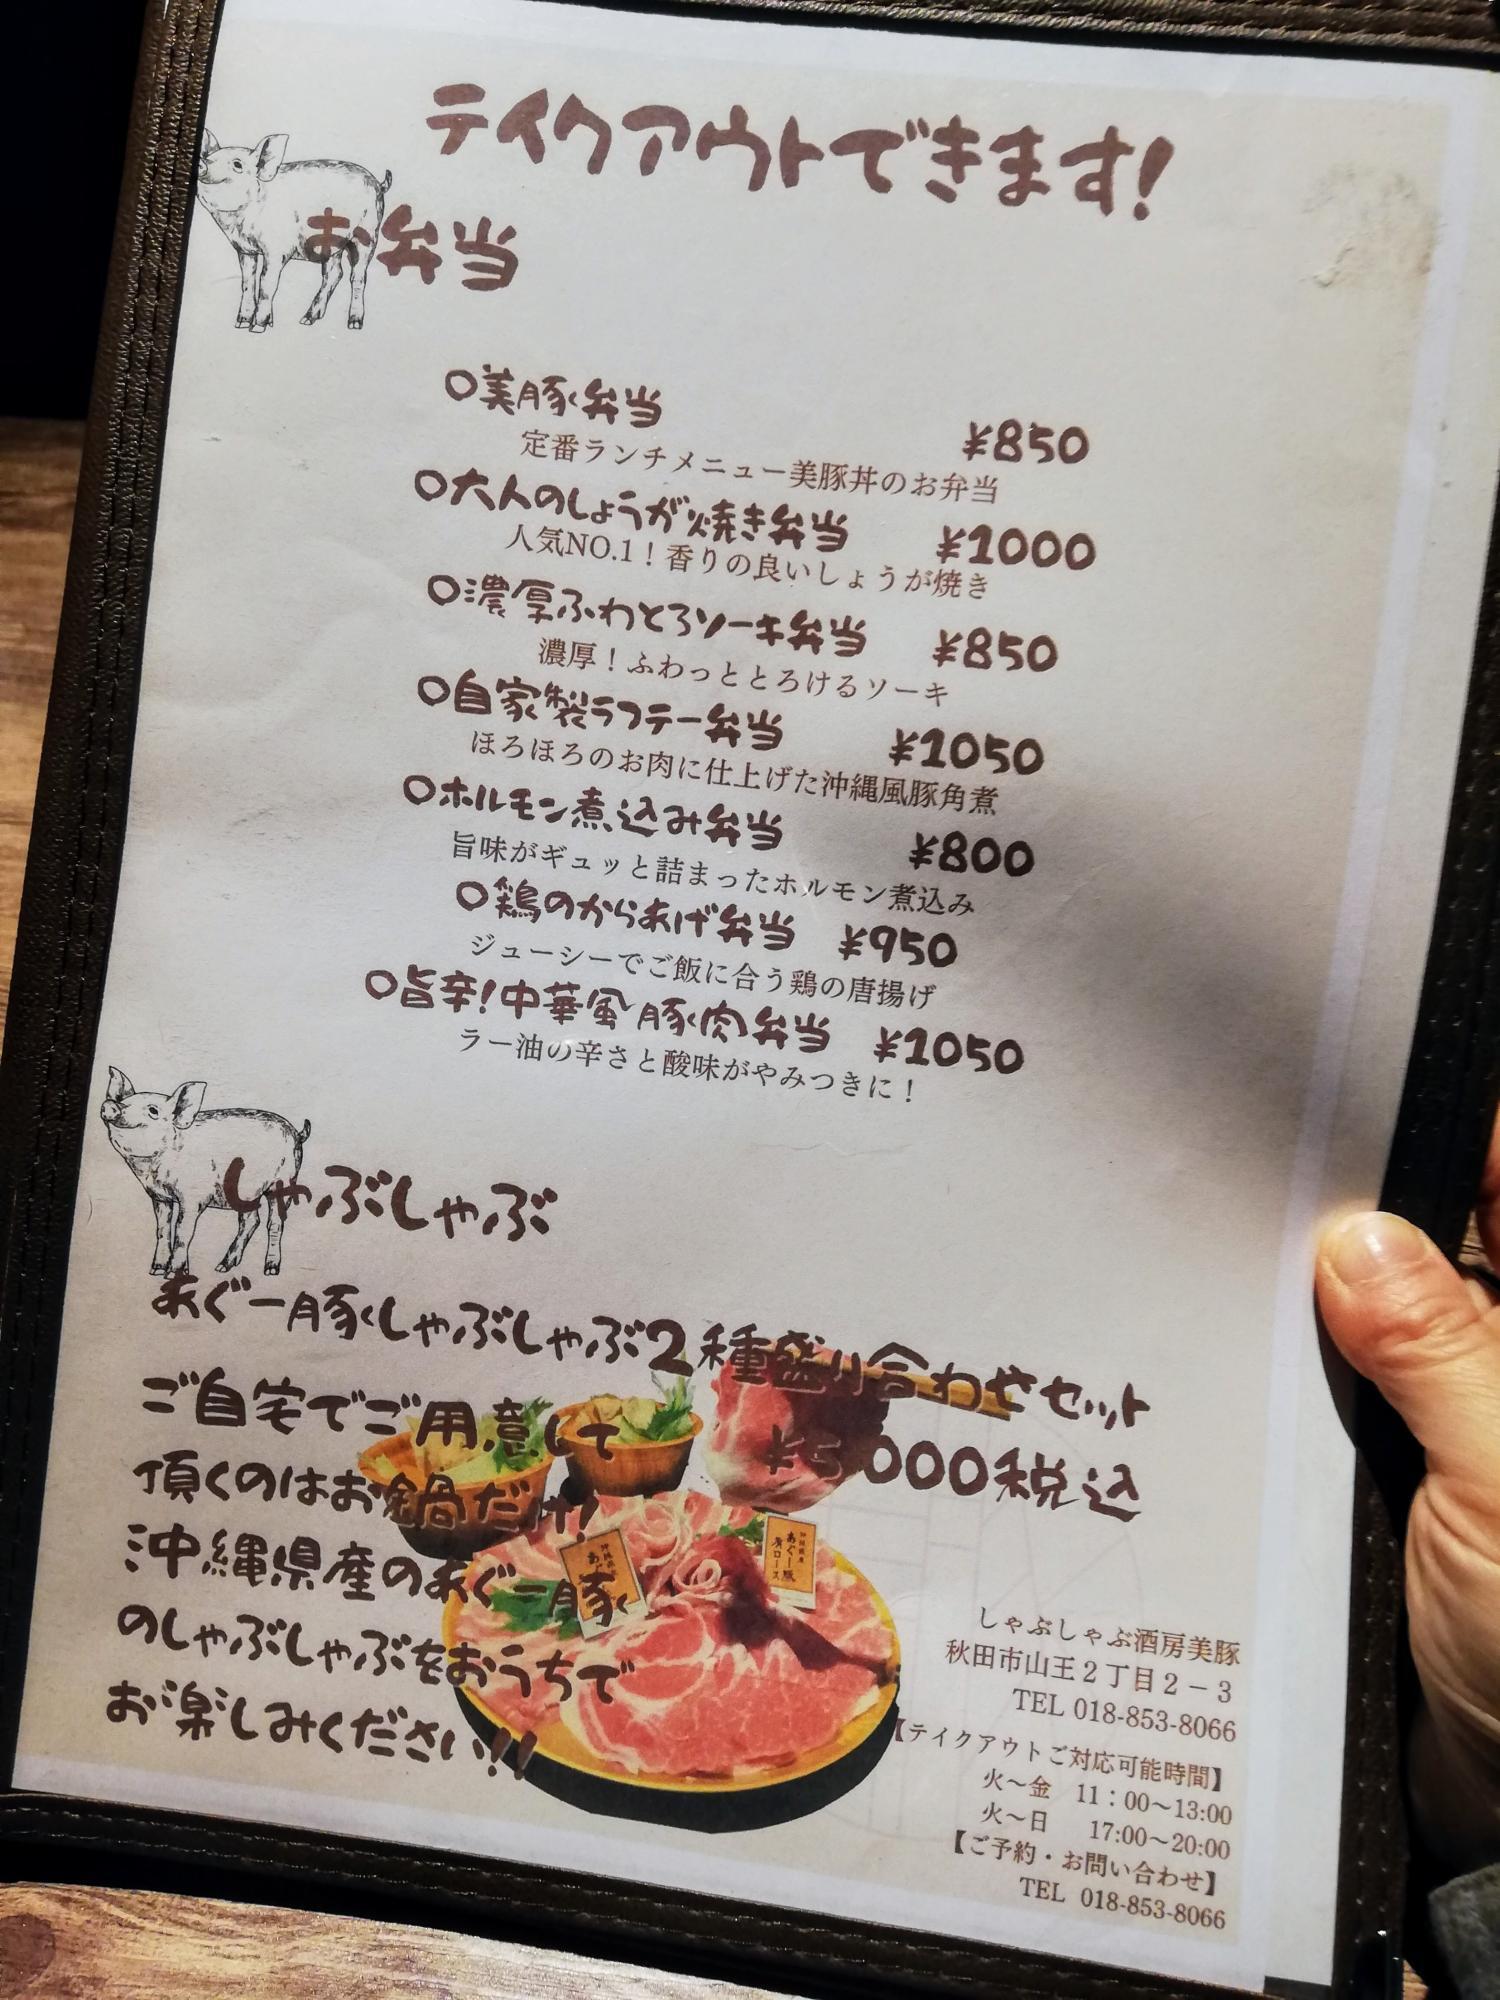 テイクアウトできます!
お弁当
○美豚弁当 ¥850
定番ランチメニュー美豚丼のお弁当
○大人のしょうが焼き弁当 ¥1000
人気NO.1！香りの良いしょうが焼き
○濃厚ふわとろソーキ弁当 ¥850
濃厚！ふわっととろけるソーキ
○自家製ラフテー弁当 ¥1050
ほろほろのお肉に仕上げた沖縄風豚角煮
○ホルモン煮込み弁当 ¥800
旨味がギュッと詰まったホルモン煮込み
○鶏のからあげ弁当 ¥950
ジューシーでご飯に合う鶏の唐揚げ
○旨辛!中華風豚肉弁当 ¥1050
ラー油の辛さと酸味がやみつきに！
しゃぶしゃぶ
あぐー豚しゃぶしゃぶ2種盛り合わせセット
¥5000税込
ご自宅でご用意して
頂くのはお鍋だけ!
沖縄県産のあぐー豚
のしゃぶしゃぶをおうちで
お楽しみください!!
あぐー豚
肩ロース
しゃぶしゃぶ酒房美豚
秋田市山王２丁目２－３
TEL 018-853-8066
【テイクアウトご対応可能時間】
火～金 11：00~13:00
火～日 17:00~20:00
【ご予約・お問い合わせ】
TEL 018-853-8066